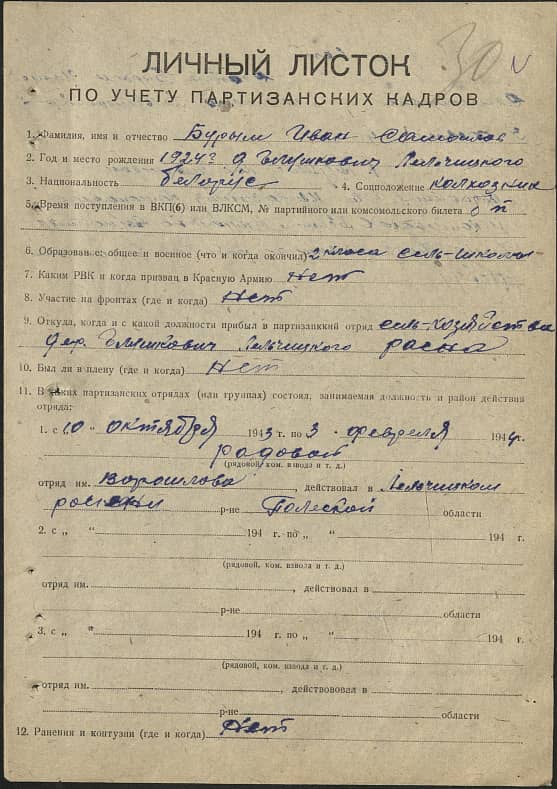 30
ЛИЧНЫЙ ЛИСТОК
ПО УЧЕТУ ПАРТИЗАНСКИХ КАДРОВ
1. Фамилия, имя и отчество Бурым Иван Самойлов
2. Год и место рождения 1924 г. д Лельчицкого
3. Национальность белорус 4. Соцположение колхозник
5. Время поступления в ВКП(б) или ВЛКСМ, № партийного или комсомольского билета б п
6. Образование: общее и военное (что и когда окончил) 2 класа сель-школы
7. Каким РВК и когда призван в Красную Армию Нет
8. Участие на фронтах (где и когда) Нет
9. Откуда, когда и с какой должности прибыл в партизанкий отряд сель-хозяйства
дер. Лельчицкого
10. Был ли в плену (где и когда) Нет
11. В каких партизанских отрядах (или группах) состоял, занимаемая должность и район действия
отряда:
1. с „10 “ октября 1943 г. по 3 февраля 1944 г.
радовой
(рядовой, ком. взвода и т. д.)
отряд им. Ворошлова действовал в Лельчицком
р-не Полеской области
2. с „ “ 194 г. по „ “ 194 г.
(рядовой, ком. взвода и т. д.)
отряд им. , действовал в
р-не области
3. с „ “ 194 г. по „ “ 194 г.
(рядовой, ком. взвода и т. д.)
отряд им. , действововал в
р-не области
12. Ранения и контузии (где и когда) Нет